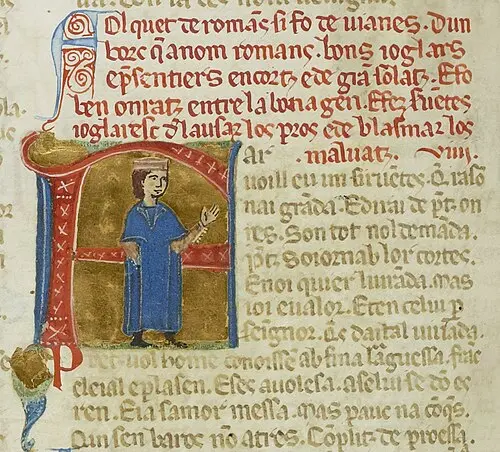 Folquet de romās si fo de uianes. Dun
borc q̄ a nom romans. bons ioglars
e p̄sentiers en cortz. e de grā solatz. E fo
ben onratz entre la bona gen. E fez siruētes
ioglaresc d lausar los pros e de blasmar los
Far maluatz. viiij.
uoill eu un siruētes. Q̄ raso
nai grāda. E dirai de p̄t on
res. Son tot nol demāda.
p̄t. So iorn ab lor cortes.
E noi quier liurāda. Mas
ioi e ualor. E ten celui p
seignor. Qe daital uiurāda.
Pret uol home conoisse ab fina larguessa. frāc
e leial e plasen. E sec auolesa. dō e
ren. E ia samor messa. Mas pauc na
Qui sen baros nō atres. Cōplit de proessa.